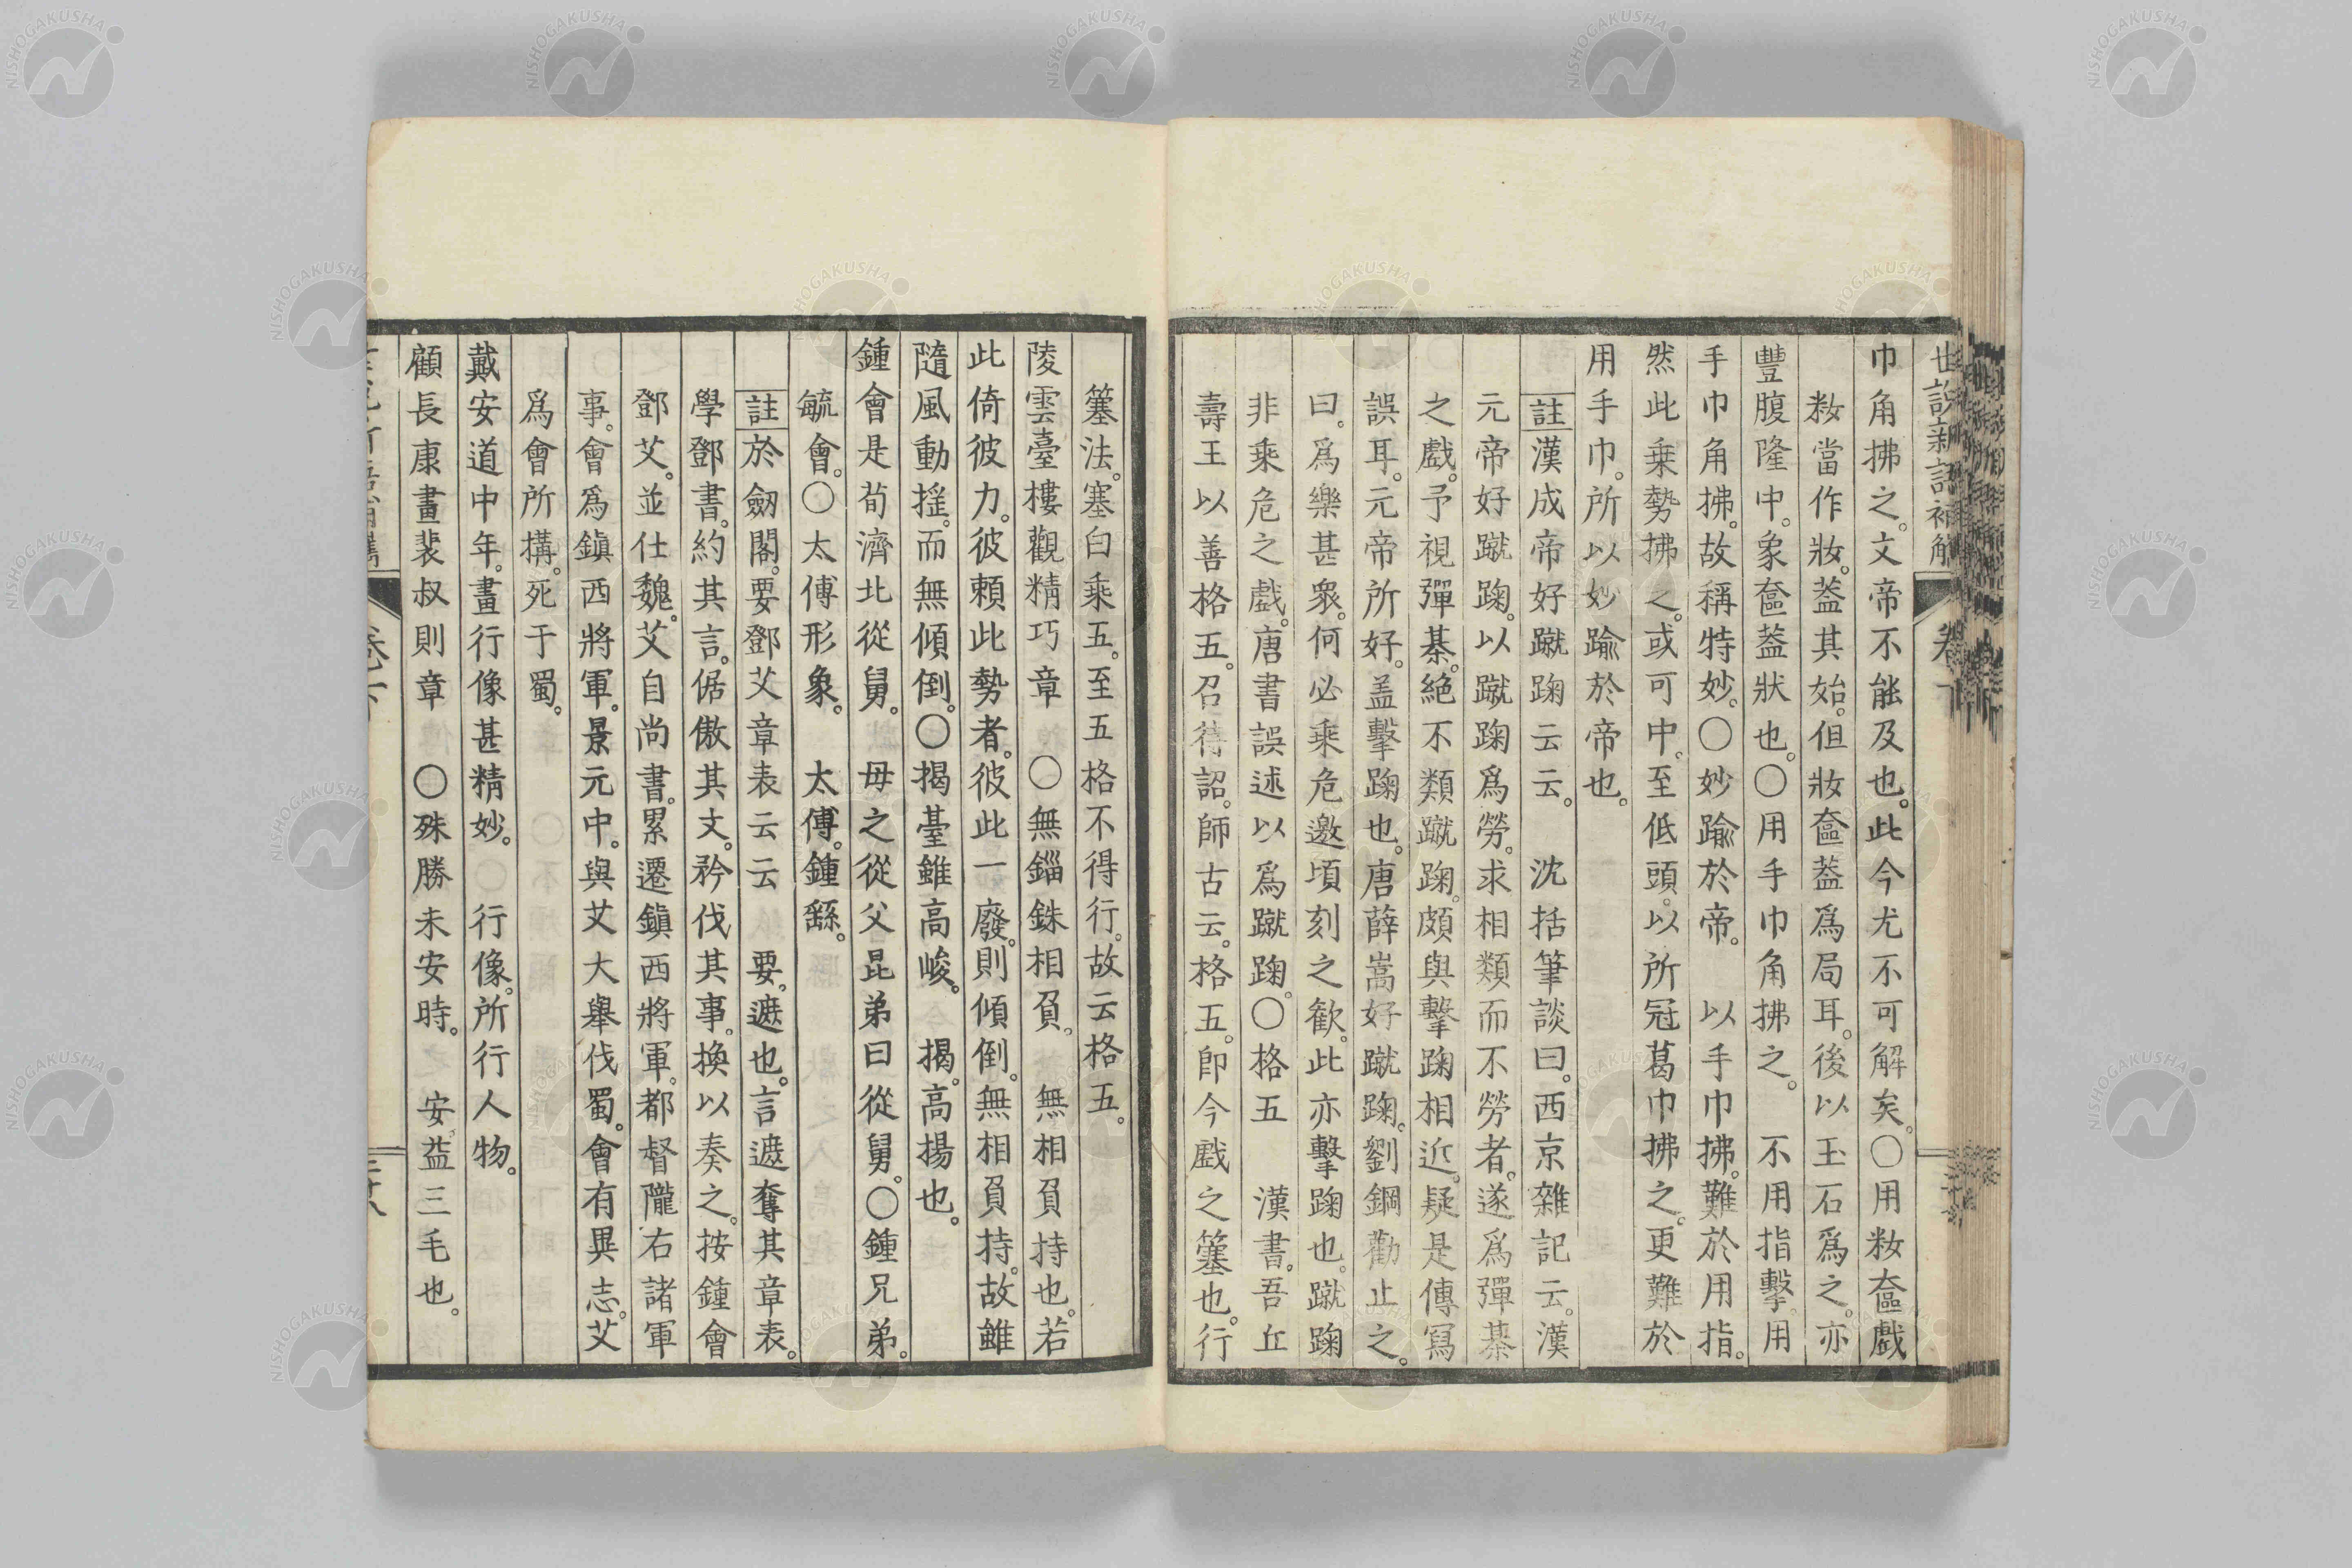 世說新語補觿 卷下
巾角拂之。文帝不能及也。此今尤不可解矣。○用籹奩戲
籹當作妝。葢其始。但妝奩葢爲局耳。後以玉石爲之。亦
豐腹隆中。象奩葢狀也。○用手巾角拂之。 不用指擊。用
手巾角拂。故稱特妙。○妙踰於帝。 以手巾拂。難於用指。
然此乗勢拂之。或可中。至低頭。以所冠葛巾拂之。更難於
用手巾。所以妙踰於帝也。
註漢成帝好蹴踘云云。 沈括筆談曰。西京雜記云。漢
元帝好蹴踘。以蹴踘爲勞。求相類而不勞者。遂爲彈棊
之戲。予視彈棊。絕不類蹴踘。頗與擊踘相近。疑是傳寫
誤耳。元帝所好。盖擊踘也。唐薛嵩好蹴踘。劉鋼勸止之。
曰。爲樂甚衆。何必乘危邀頃刻之歡。此亦擊踘也。蹴踘
非乘危之戲。唐書誤述以爲蹴踘。○格五 漢書。吾丘
壽王以善格五。召待詔。師古云。格五。卽今戲之簺也。行
簺法。塞白乘五。至五格不得行。故云格五。
陵雲臺樓觀精巧章 ○無錙銖相負。 無相負持也。若
此倚彼力。彼賴此勢者。彼此一廢。則傾倒。無相負持。故雖
隨風動搖。而無傾倒。○揭臺雖高峻。 揭。高揚也。
鍾會是荀濟北從舅。 母之從父昆弟曰從舅。○鍾兄弟。
毓會。○太傅形象。 太傅。鍾繇。
註於劒閣。要鄧艾章表云云 要。遮也。言遮奪其章表。
學鄧書。約其言。倨傲其文。矜伐其事。換以奏之。按鍾會
鄧艾。並仕魏。艾自尚書。累遷鎭西將軍。都督隴右諸軍
事。會爲鎭西將軍。景元中。與艾大舉伐蜀。會有異志。艾
爲會所搆。死于蜀。
戴安道中年。畫行像甚精妙。○行像。所行人物。
顧長康畫裴叔則章 ○殊勝未安時。 安。益三毛也。